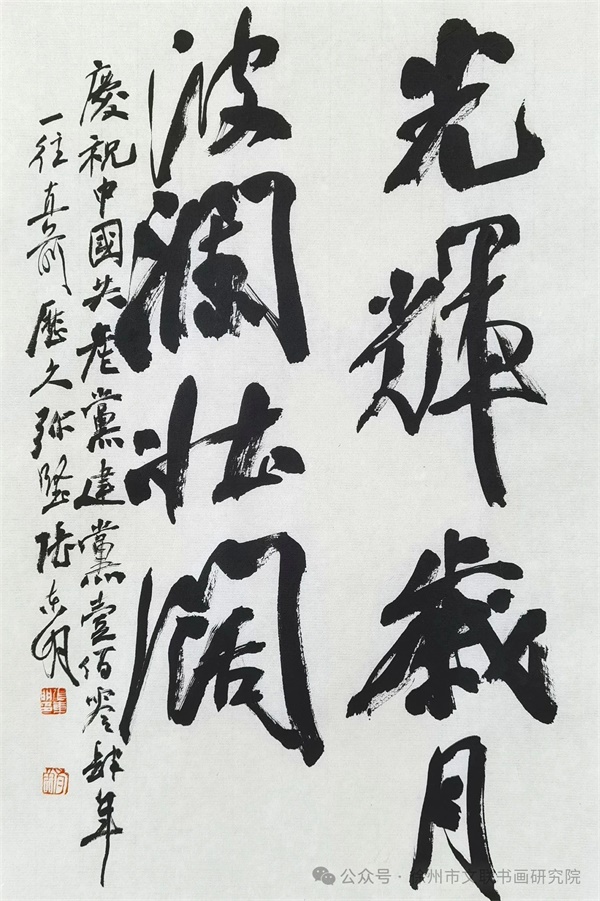 光輝歲月
波瀾壯闊
慶祝中國共產黨建黨壹佰零肆年
一往直前歷久弥堅陸東明
公众号·州市文联书画研究院